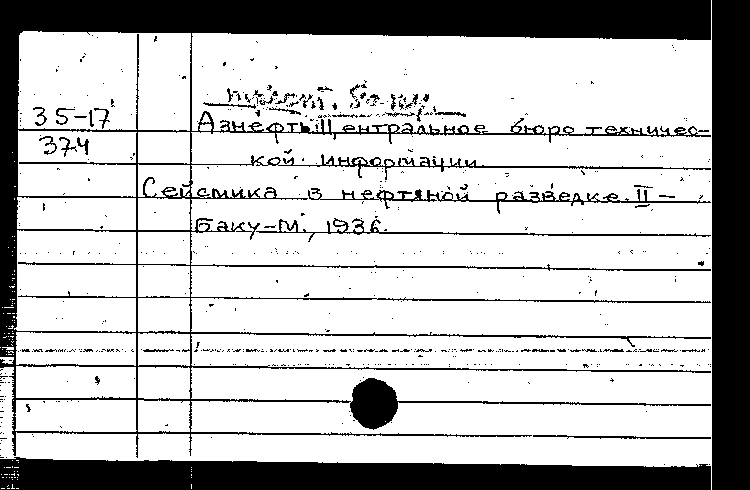 трест. Баку.
35-17
374
Азнефть. Центральное бюро техничес-
кой информации.
Сейсмика в нефтяной разведке. II —
Баку-М., 1936.